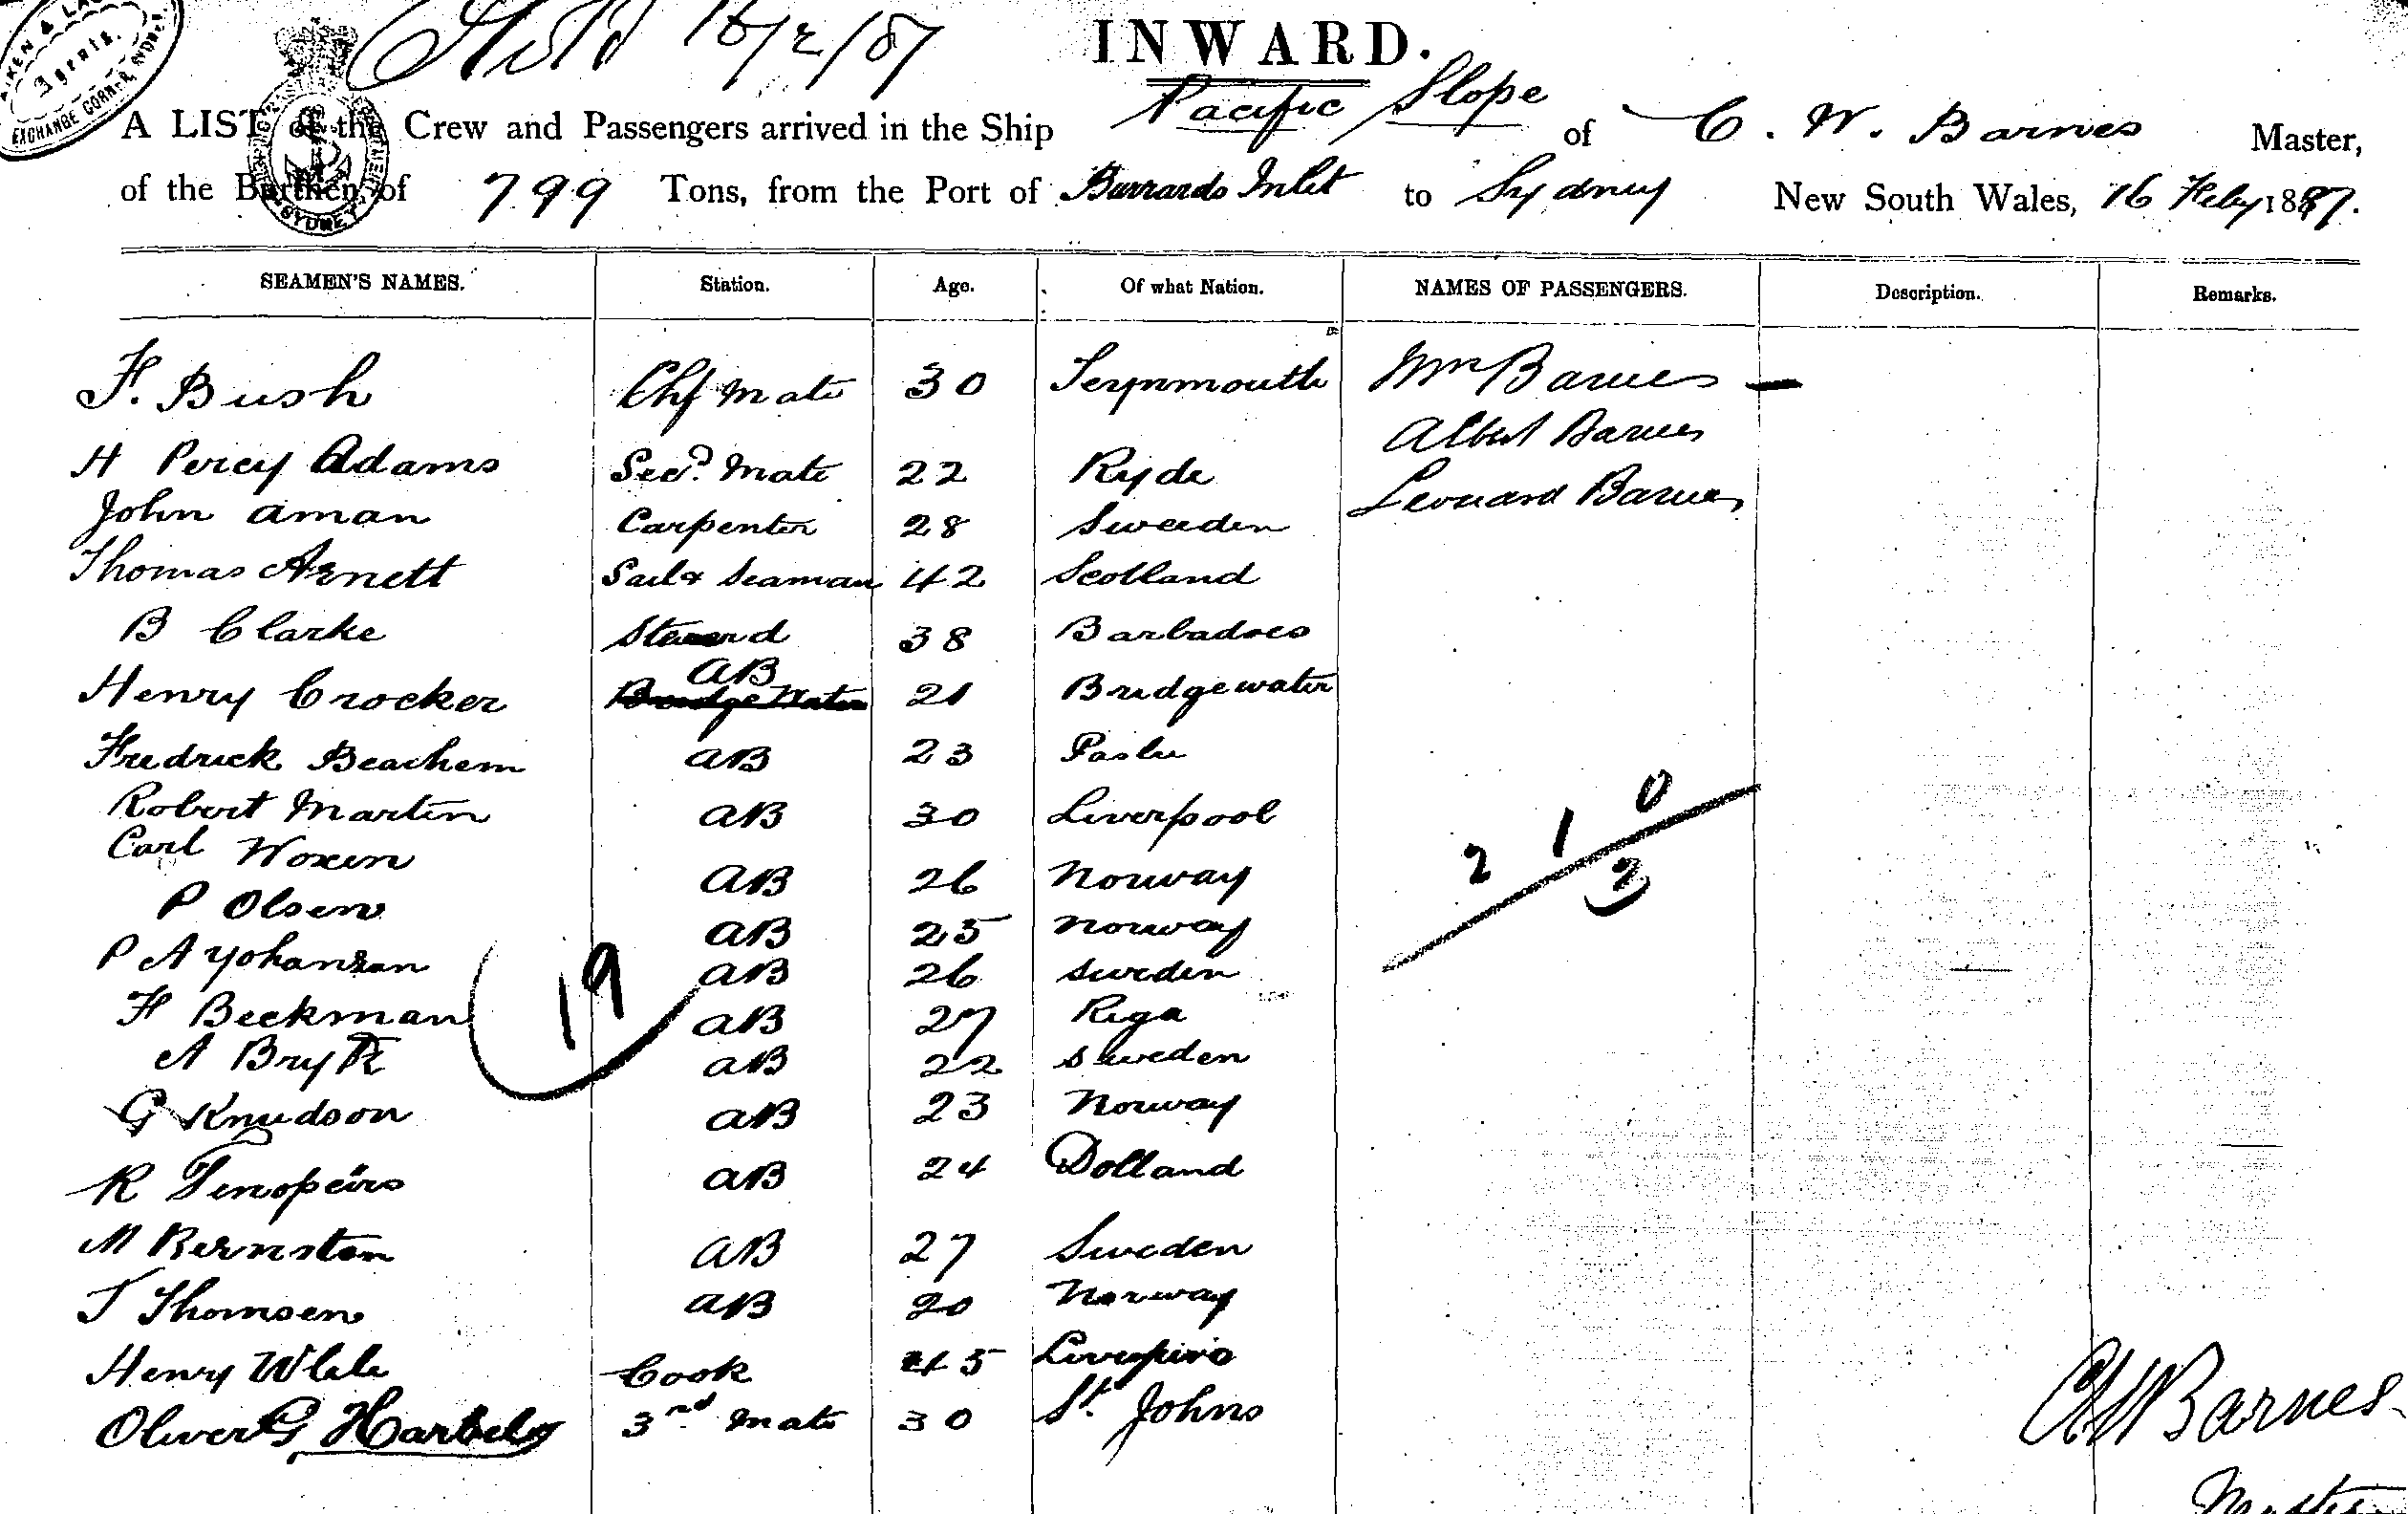 16/2/87
INWARD.
A LIST of the Crew and Passengers arrived in the Ship Pacific Slope of C. W. Barnes Master,
of the Burthen of 799 Tons, from the Port of Burrards Inlet to Sydney New South Wales, 16 Feby 1887.
EXCHANGE CORNER, SYDNEY
Agents.
SYDNEY
SEAMEN'S NAMES. Station. Age. Of what Nation. NAMES OF PASSENGERS. Description. Remarks.
F. Bush Chf Mate 30 Teynmouth Mrs Barnes —
Albert Barnes
H Percy Adams Secd. Mate 22 Ryde Leonard Barnes
John Aman Carpenter 28 Sweeden
Thomas Arnett Sail & Seaman 42 Scotland
B Clarke Steward 38 Barbadoes
Henry Crocker AB 21 Bridgewater
Fredrick Beachem AB 23
Robert Martin AB 30 Liverpool
Carl Woxen AB 26 Norway
P Olsen AB 25 Norway
P A Yohansan AB 26 Sweden
F Beckman AB 27 Riga
A AB 22 Sweden
G Knudson AB 23 Norway
R AB 24 Dolland
M Bernsten AB 27 Sweden
T Thomsen AB 20 Norway
Henry Cook 45
Oliver G 3rd Mate 30 St. Johns
19
2 1 0
3
CW Barnes
Master